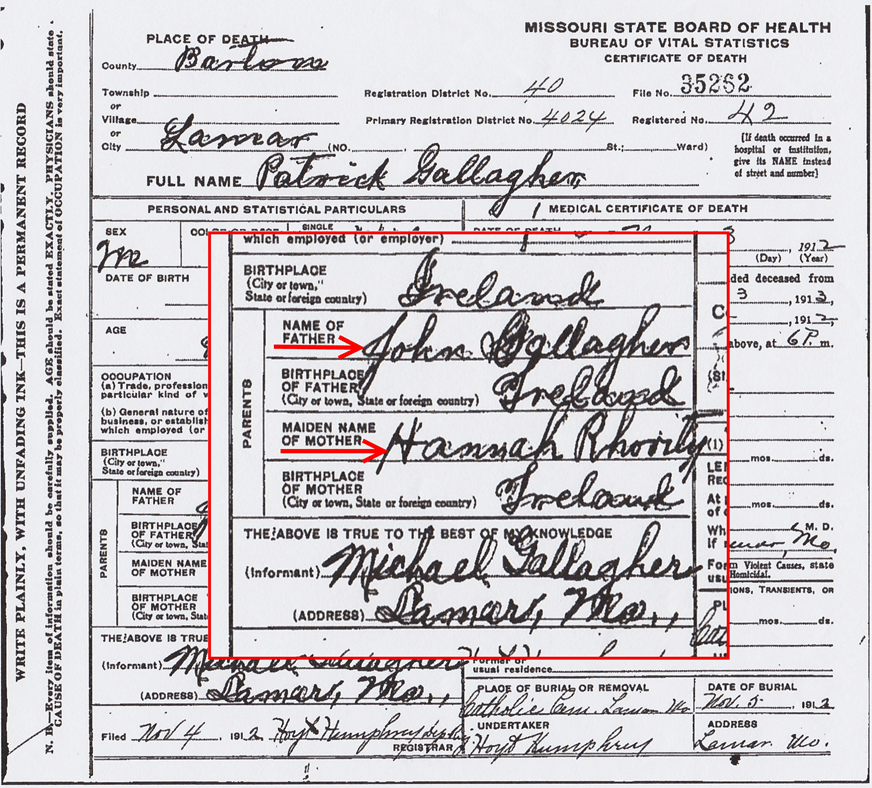 WRITE PLAINLY, WITH UNFADING INK—THIS IS A PERMANENT RECORD
N. B.—Every item of information should be carefully supplied. AGE should be stated EXACTLY. PHYSICIANS should state
CAUSE OF DEATH in plain terms, so that it may be properly classified. Exact statement of OCCUPATION is very important.
MISSOURI STATE BOARD OF HEALTH
BUREAU OF VITAL STATISTICS
CERTIFICATE OF DEATH
PLACE OF DEATH
County Barton
Township
or
Village
or
City Lamar (NO. St.; Ward)
Registration District No. 40 File No. 35262
Primary Registration District No. 4024 Registered No. 42
[If death occurred in a
hospital or institution,
give its NAME instead
of street and number]
FULL NAME Patrick Gallagher
PERSONAL AND STATISTICAL PARTICULARS
MEDICAL CERTIFICATE OF DEATH
SEX
SINGLE
DATE OF DEATH
1912
(Day) (Year)
DATE OF BIRTH
ded deceased from
3, 1913,
, 191
above, at 6 P. m.
AGE
OCCUPATION
(a) Trade, profession
particular kind of w
(b) General nature of
business, or establis
which employed (or
BIRTHPLACE
(City or town,
State or foreign country)
PARENTS
NAME OF
FATHER
BIRTHPLACE
OF FATHER
(City or town, Sta
MAIDEN NAME
OF MOTHER
BIRTHPLACE
OF MOTHER
(City or town, Sta
which employed (or employer)
BIRTHPLACE
(City or town,
State or foreign country) Ireland
PARENTS
NAME OF
FATHER John Gallagher
BIRTHPLACE
OF FATHER
(City or town, State or foreign country) Ireland
MAIDEN NAME
OF MOTHER Hannah Rhority
BIRTHPLACE
OF MOTHER
(City or town, State or foreign country) Ireland
THE ABOVE IS TRUE TO THE BEST OF MY KNOWLEDGE
(Informant) Michael Gallagher
(ADDRESS) Lamar, Mo.,
mos. ds.
mos. ds.
M. D.
Mo.
m Violent Causes, state
Homicidal.
IONS, TRANSIENTS, OR
mos. ds.
THE ABOVE IS TRUE
(Informant) Michael Gallagher
(ADDRESS) Lamar, Mo.,
Former or
usual residence
PLACE OF BURIAL OR REMOVAL
Catholic Cem. Lamar Mo
DATE OF BURIAL
Nov. 5, 191
Filed Nov 4, 191 Hoyt Humphrey
REGISTRAR
UNDERTAKER
Hoyt Humphrey
ADDRESS
Lamar Mo.